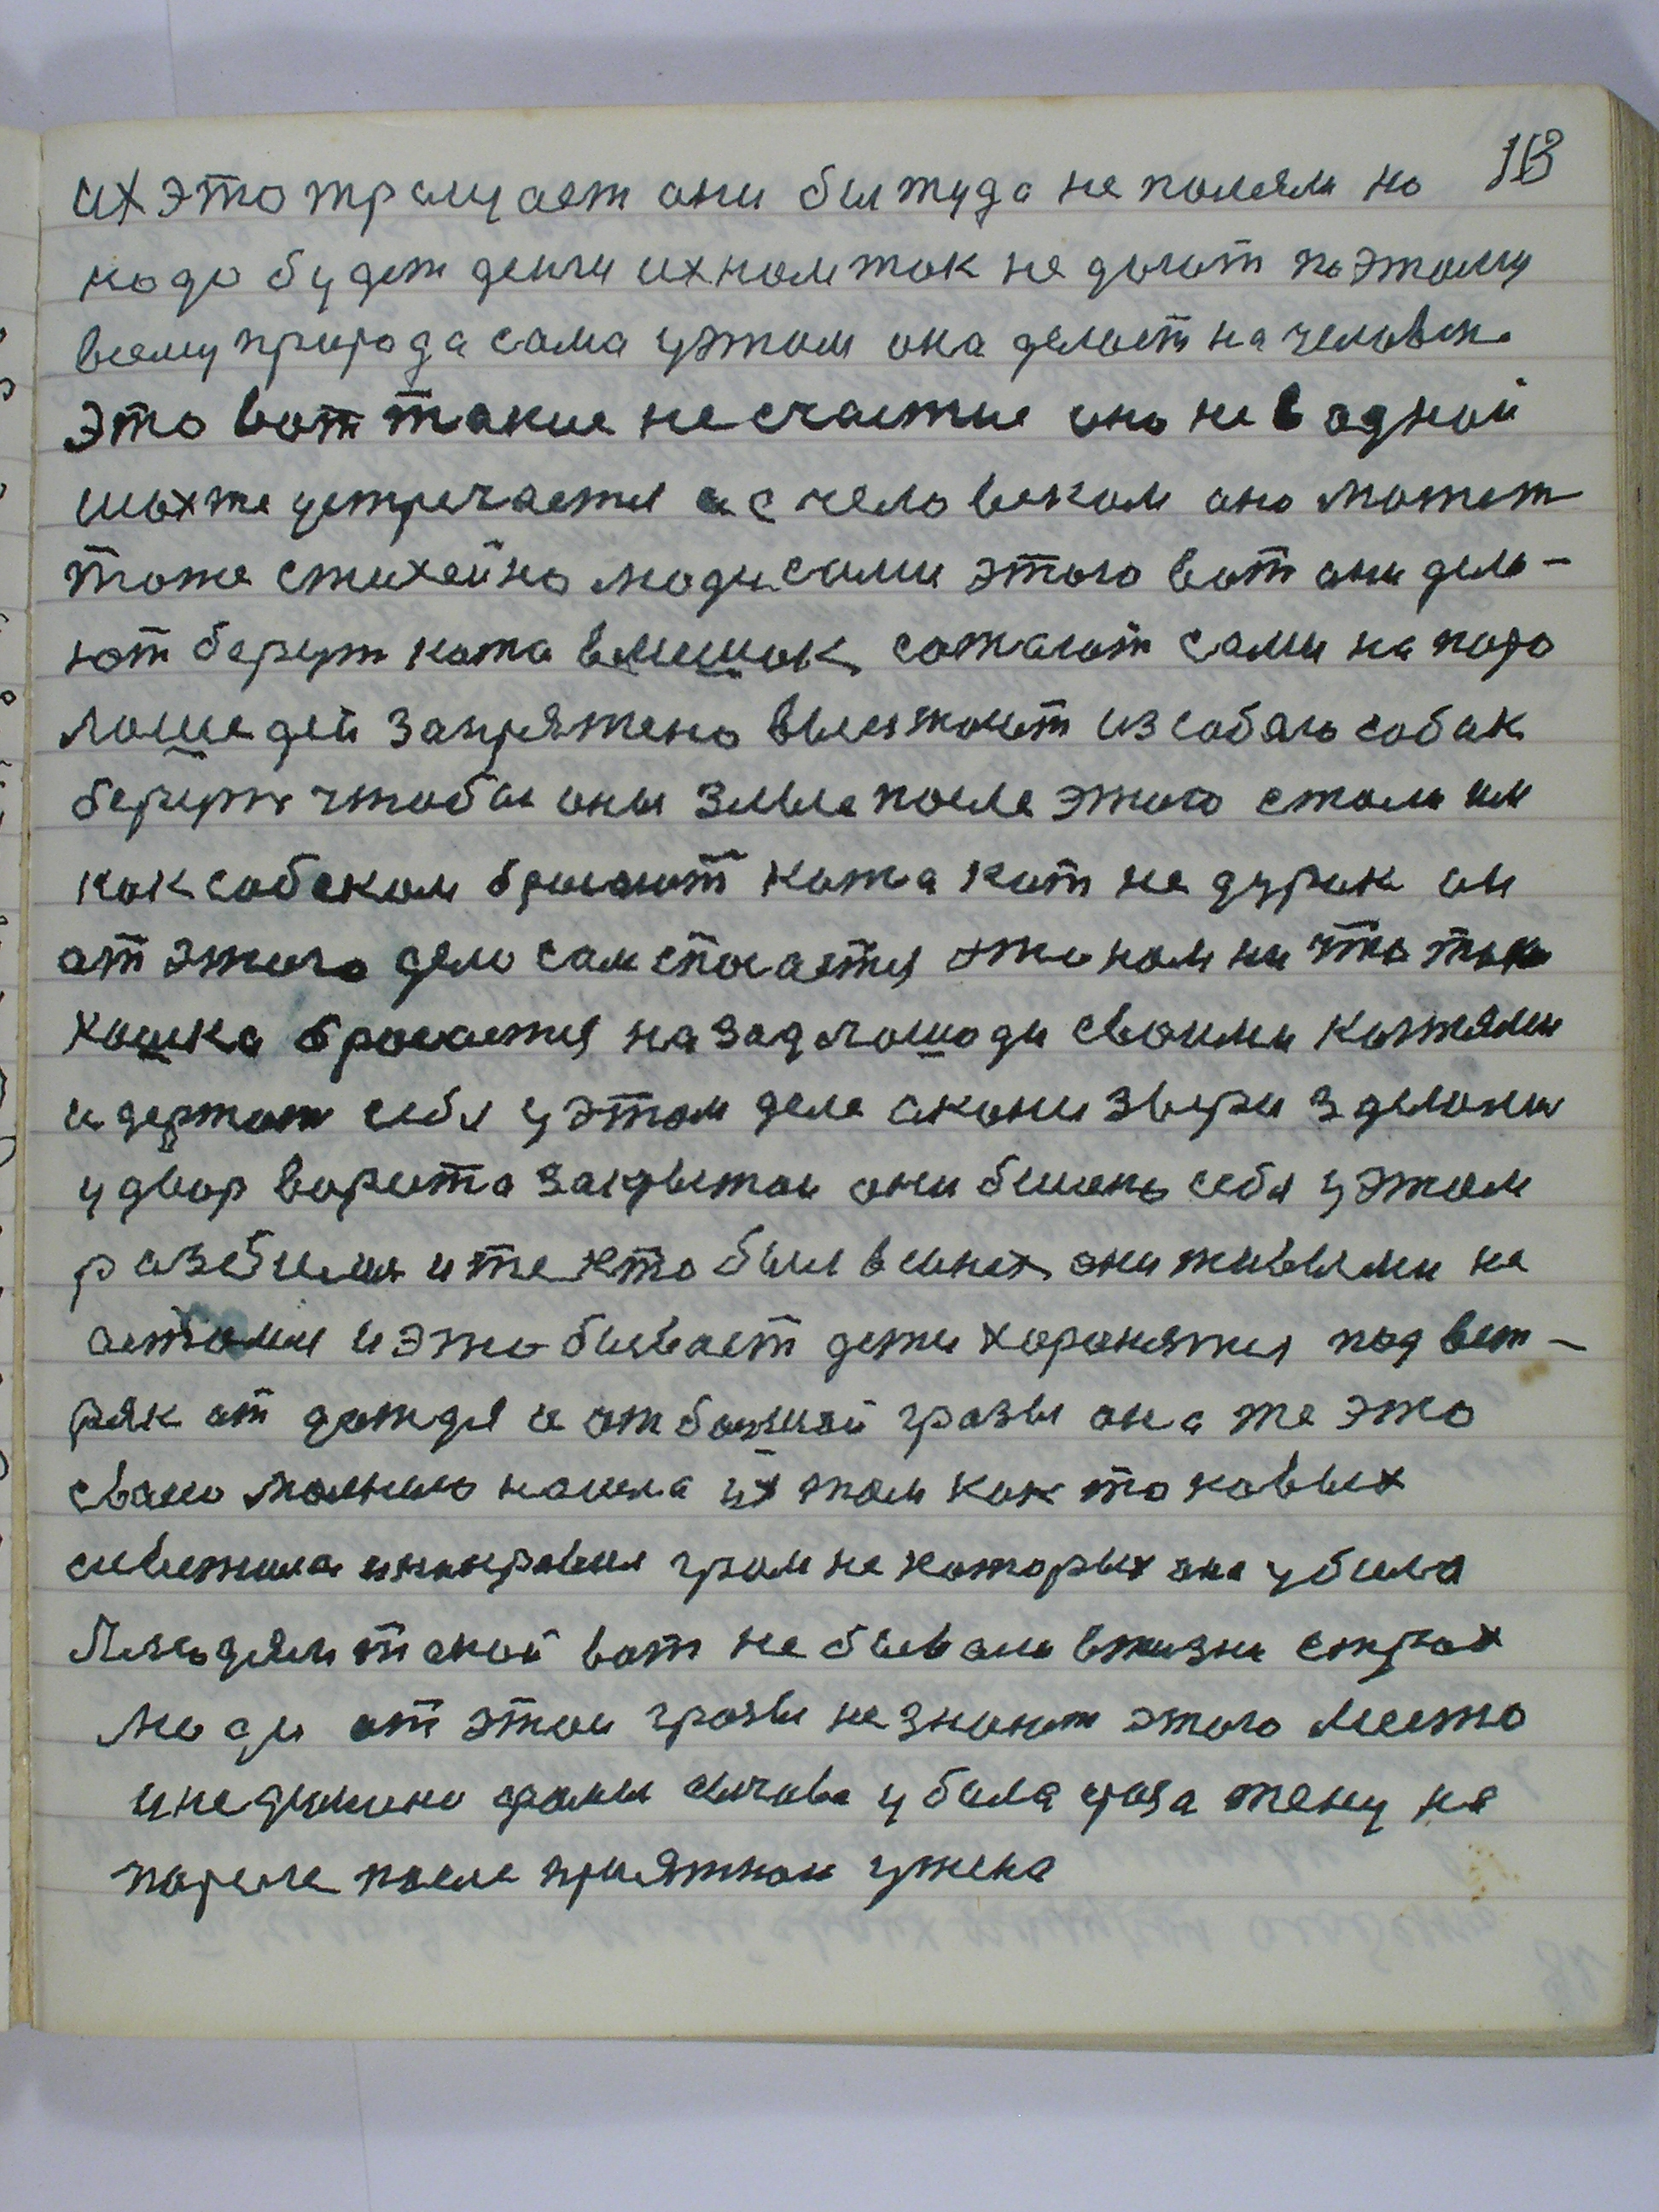 113
их это тращает они бы туда не полезли но
надо будет денги их нам так не дают поэтому
всему природа сама у этом она делает на человека
это вот такие несчастие оно не в одной
шахте устречается а с человеком оно может
тоже стихейно люди сами этого вот они дела-
ют берут кота в мешок сажают сами на паро
лошадей запряжено выезжают из собою собак
берут чтобы они злые после этого стали им
как собакам бросают кота кот не дурак он
от этого дело сам спасается это нам ни что так
кошка бросается на зад лошади своими коктями
и держит себя у этом деле а кони звери зделоны
у двор ворота закрытаи они бишено себя у этом
разбили и те кто были в санях они живыми не
астались и это бывает дети хоронятся под вет-
ряк от дождя и от божией грозы она же это
сваю молнию нашла их там как таковых
гром некоторых она убила
Людям такой вот не бывалы в жизни страх
люди от этои грозы не знают этого место
убила гроза жену на
пороге после приятнои ужена